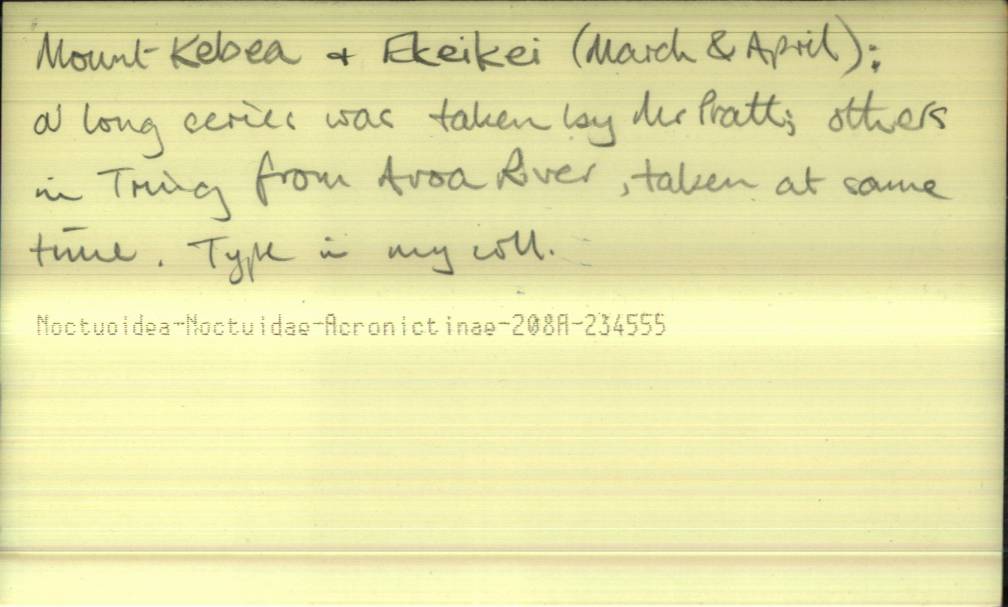 Mount Kebea + Ekeikei (March & April):
a long series was taken by Mr Pratt; others
in Tring from Aroa River, taken at same
time. Type in my coll.
Noctuoidea-Noctuidae-Acronictinae-208A-234555